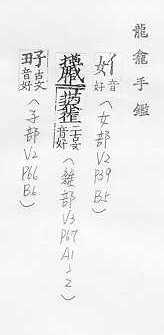 龍龕手鑑
音
好
(女部V2
P39
B5)
二古
音好
(雜部V3
P67
A1~2)
古文
音好
(子部
V2
P66
B6)